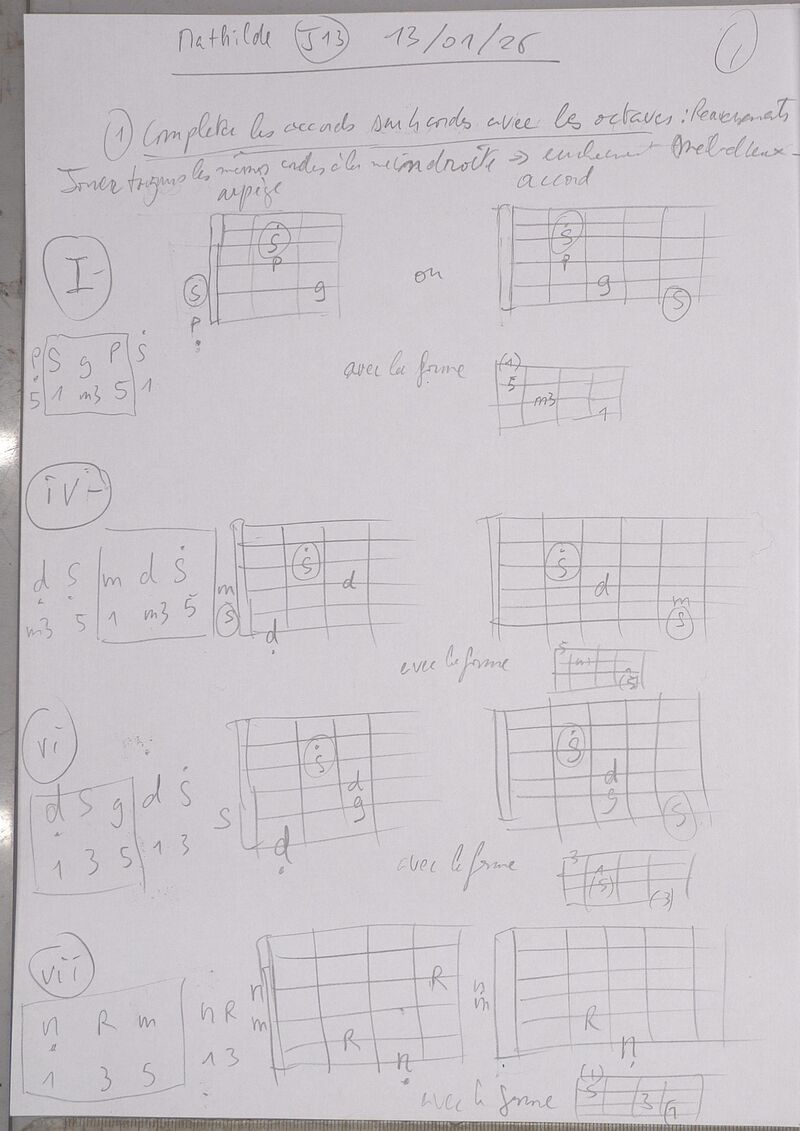 Mathilde J13 13/01/26
1
① Compléter les accords sur 4 cordes avec les octaves : Renversements
Jouer toujours les mêmes cordes à la main droite ⇒
arpège accord
I-
Ṡ
P
g
S
P
ou
Ṡ
P
g
S
P S g P Ṡ
5 1 m3 5 1
avec la forme
(1)
5
m3
1
iv-
d S m d Ṡ
m3 5 1 m3 5
Ṡ
d
m
S
d
Ṡ
d
m
S
avec la forme
5
(5)
vi
d S g d Ṡ
1 3 5 1 3
Ṡ
d
g
S
d
Ṡ
d
g
S
avec la forme
3
1
(5)
(3)
vii
n R m n R
1 3 5 1 3
n
m
R
R
n
n
m
R
n
avec la forme
(1)
5
3